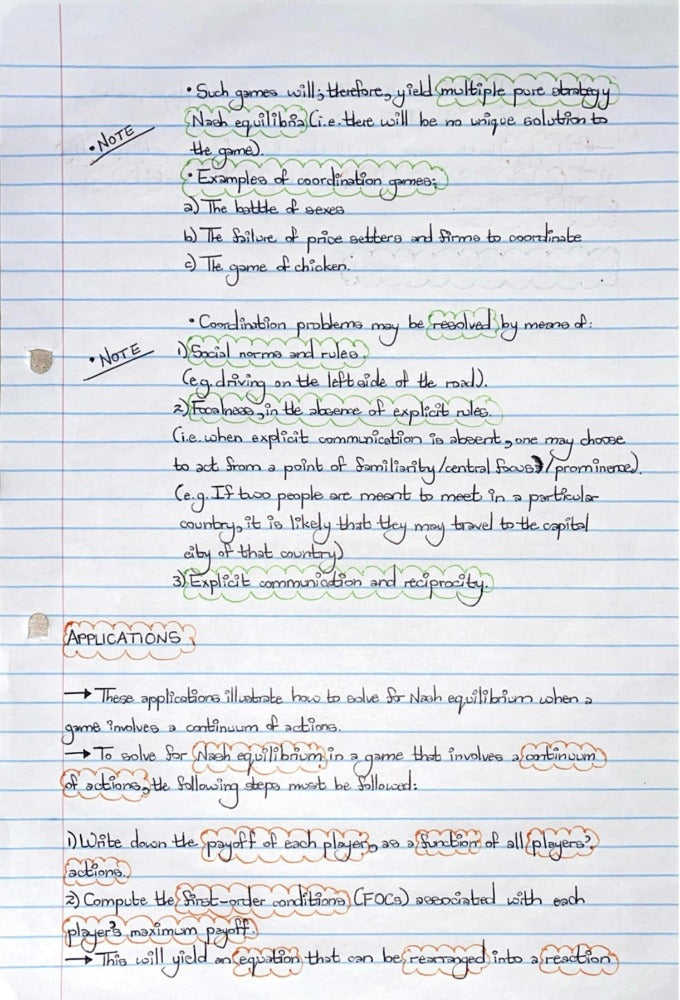 • Such games will, therefore, yield multiple pure strategy
Nash equilibia (i.e. there will be no unique solution to
• NOTE
the game).
• Examples of coordination games:
a) The battle of sexes
b) The failure of price setters and firms to coordinate
c) The game of chicken.
• Coordination problems may be resolved by means of:
• NOTE
1) Social norms and rules.
(e.g. driving on the left side of the road).
2) Focalness, in the absence of explicit rules.
(i.e. when explicit communication is absent, one may choose
to act from a point of familiarity/central focus/prominence).
(e.g. If two people are meant to meet in a particular
country, it is likely that they may travel to the capital
city of that country)
3) Explicit communication and reciprocity.
APPLICATIONS
→ These applications illustrate how to solve for Nash equilibrium when a
game involves a continuum of actions.
→ To solve for Nash equilibrium in a game that involves a continuum
of actions, the following steps must be followed:
1) Write down the payoff of each player, as a function of all players'
actions.
2) Compute the first-order conditions (FOCs) associated with each
player's maximum payoff.
→ This will yield an equation that can be rearranged into a reaction